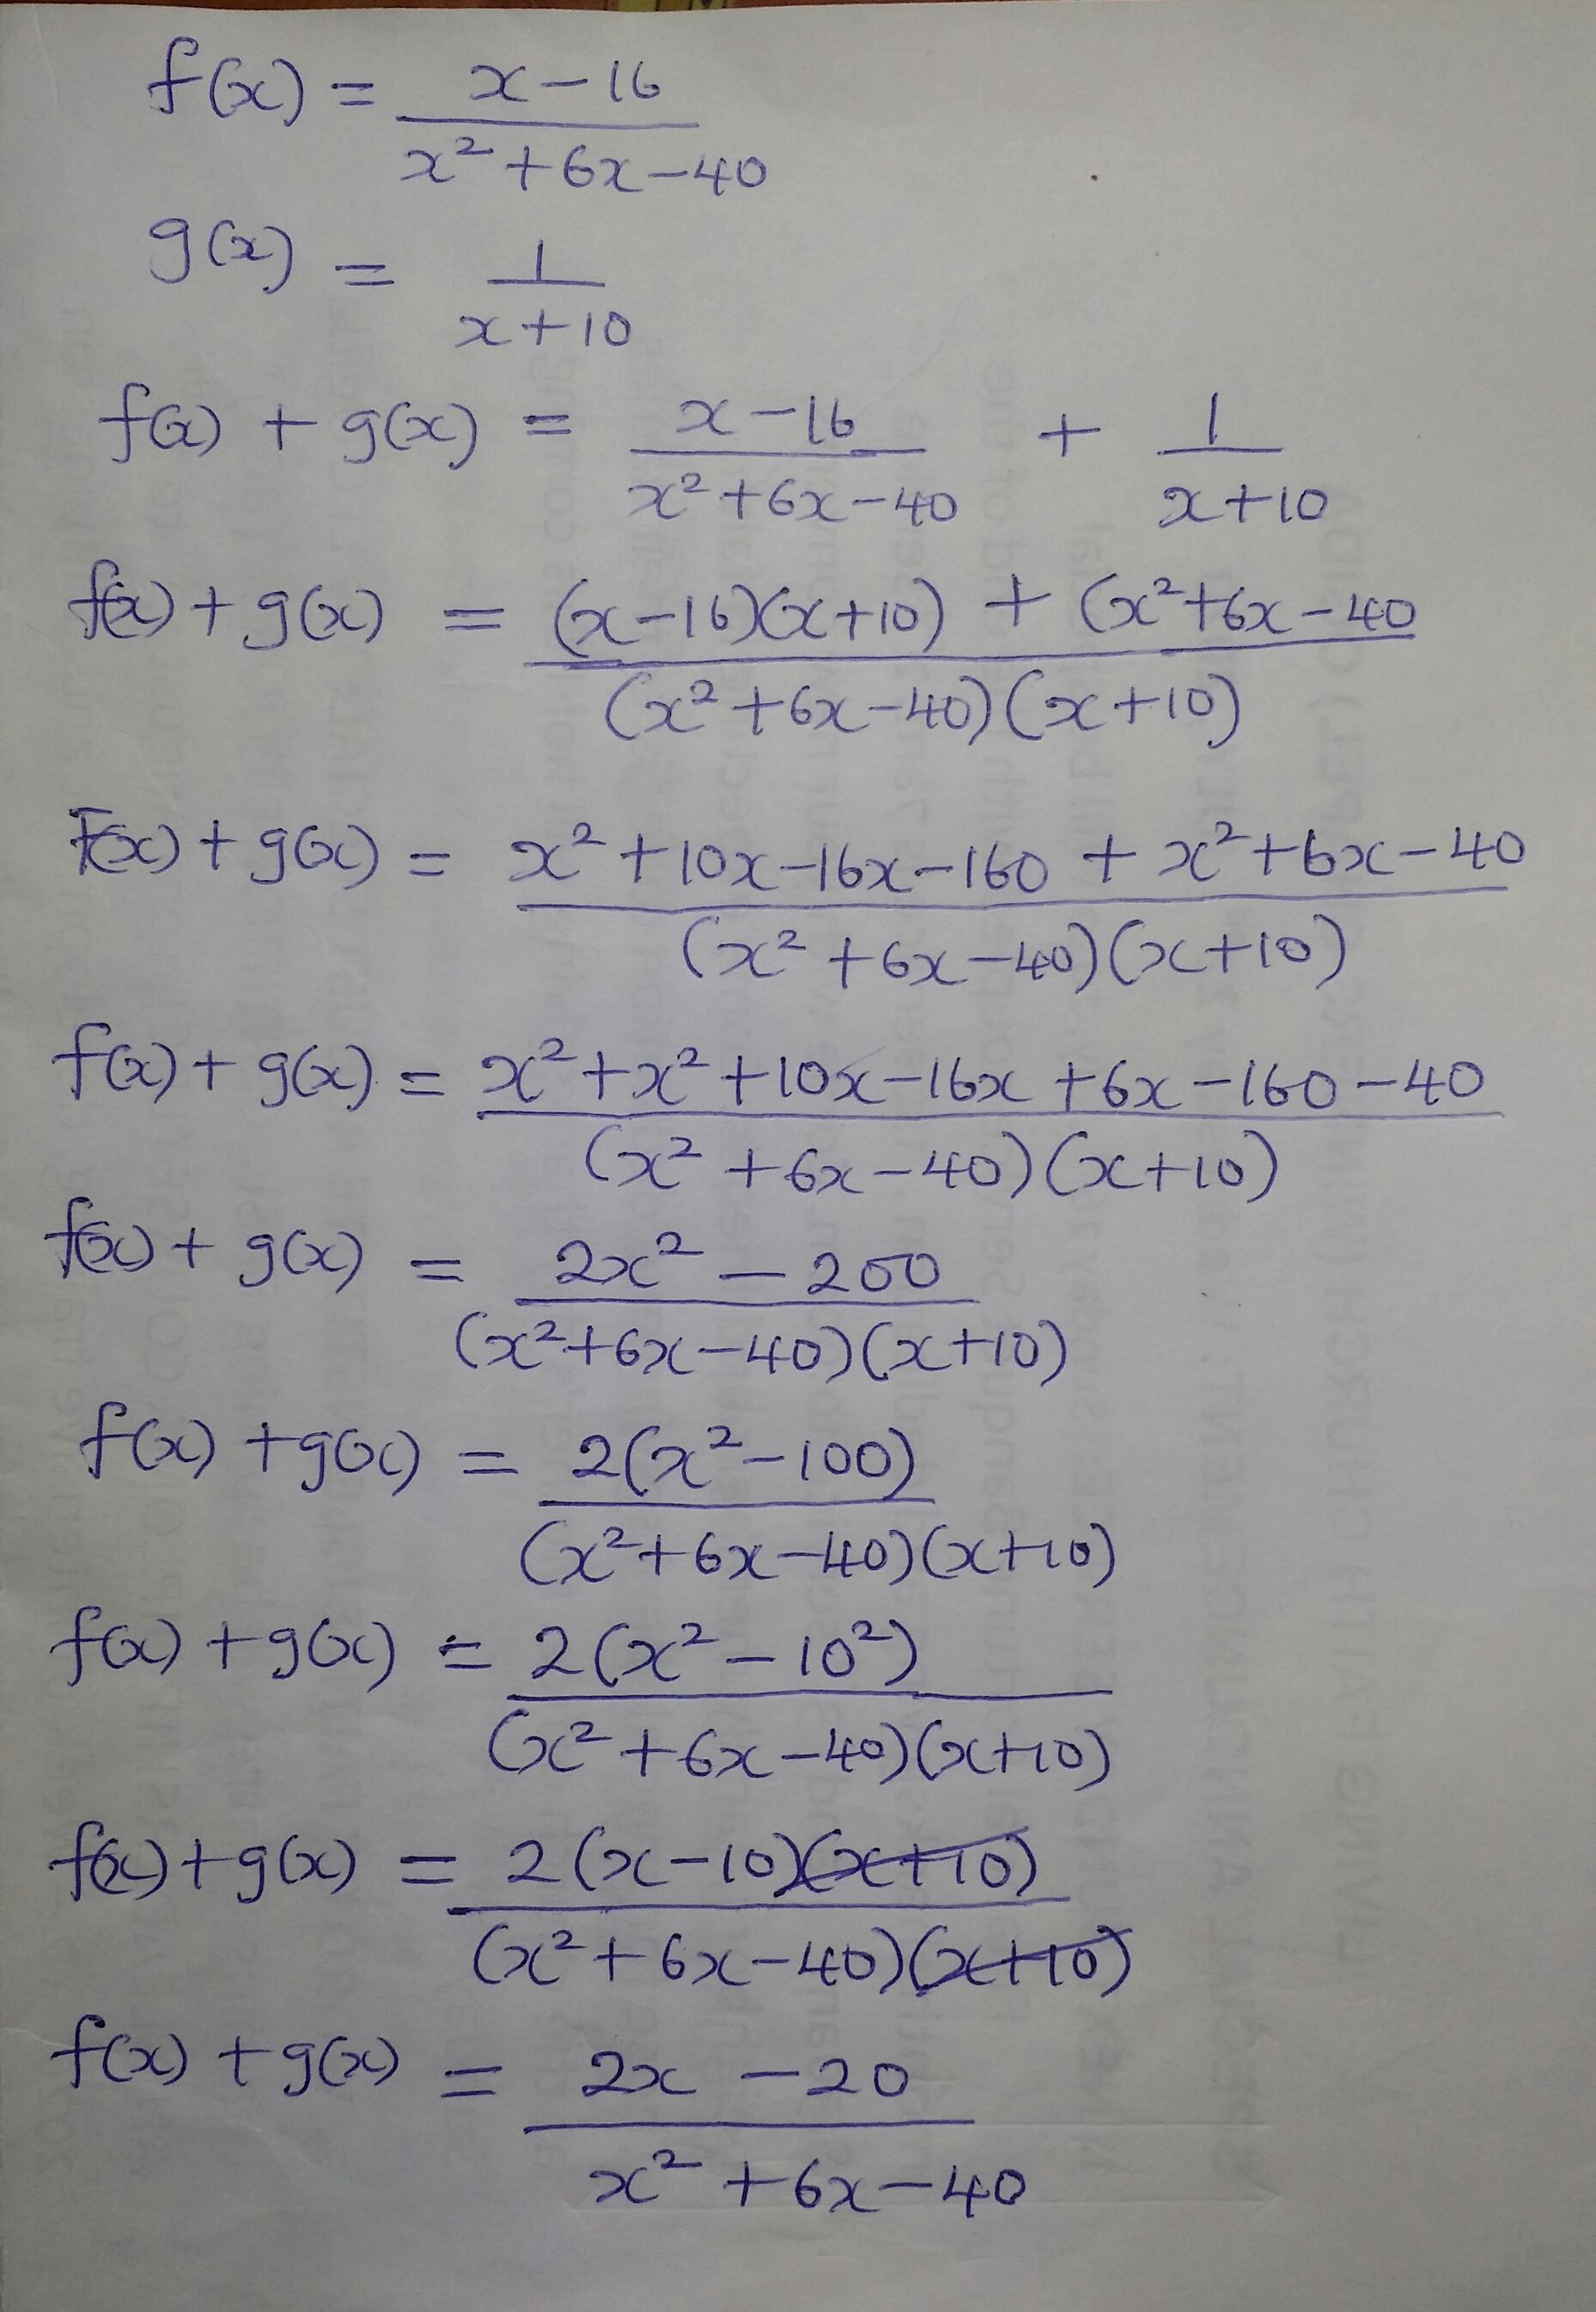 f(x) = x-16
x²+6x-40
g(x) = 1
x+10
f(x) + g(x) = x-16 + 1
x²+6x-40 x+10
f(x)+g(x) = (x-16)(x+10) + (x²+6x-40
(x²+6x-40)(x+10)
f(x)+g(x) = x²+10x-16x-160 + x²+6x-40
(x²+6x-40)(x+10)
f(x)+g(x) = x²+x²+10x-16x+6x-160-40
(x²+6x-40)(x+10)
f(x)+g(x) = 2x²-200
(x²+6x-40)(x+10)
f(x)+g(x) = 2(x²-100)
(x²+6x-40)(x+10)
f(x)+g(x) = 2(x²-10²)
(x²+6x-40)(x+10)
f(x)+g(x) = 2(x-10)(x+10)
(x²+6x-40)(x+10)
f(x)+g(x) = 2x-20
x²+6x-40